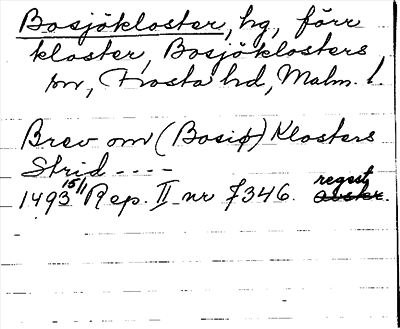 Bosjökloster, hg, förr
kloster, Bosjöklosters
sn, Frosta hd, Malm. l.
Brev om (Bosiø) Klosters
Strid ----
1493 15/1 Rep. II nr 7346. regest avskr.